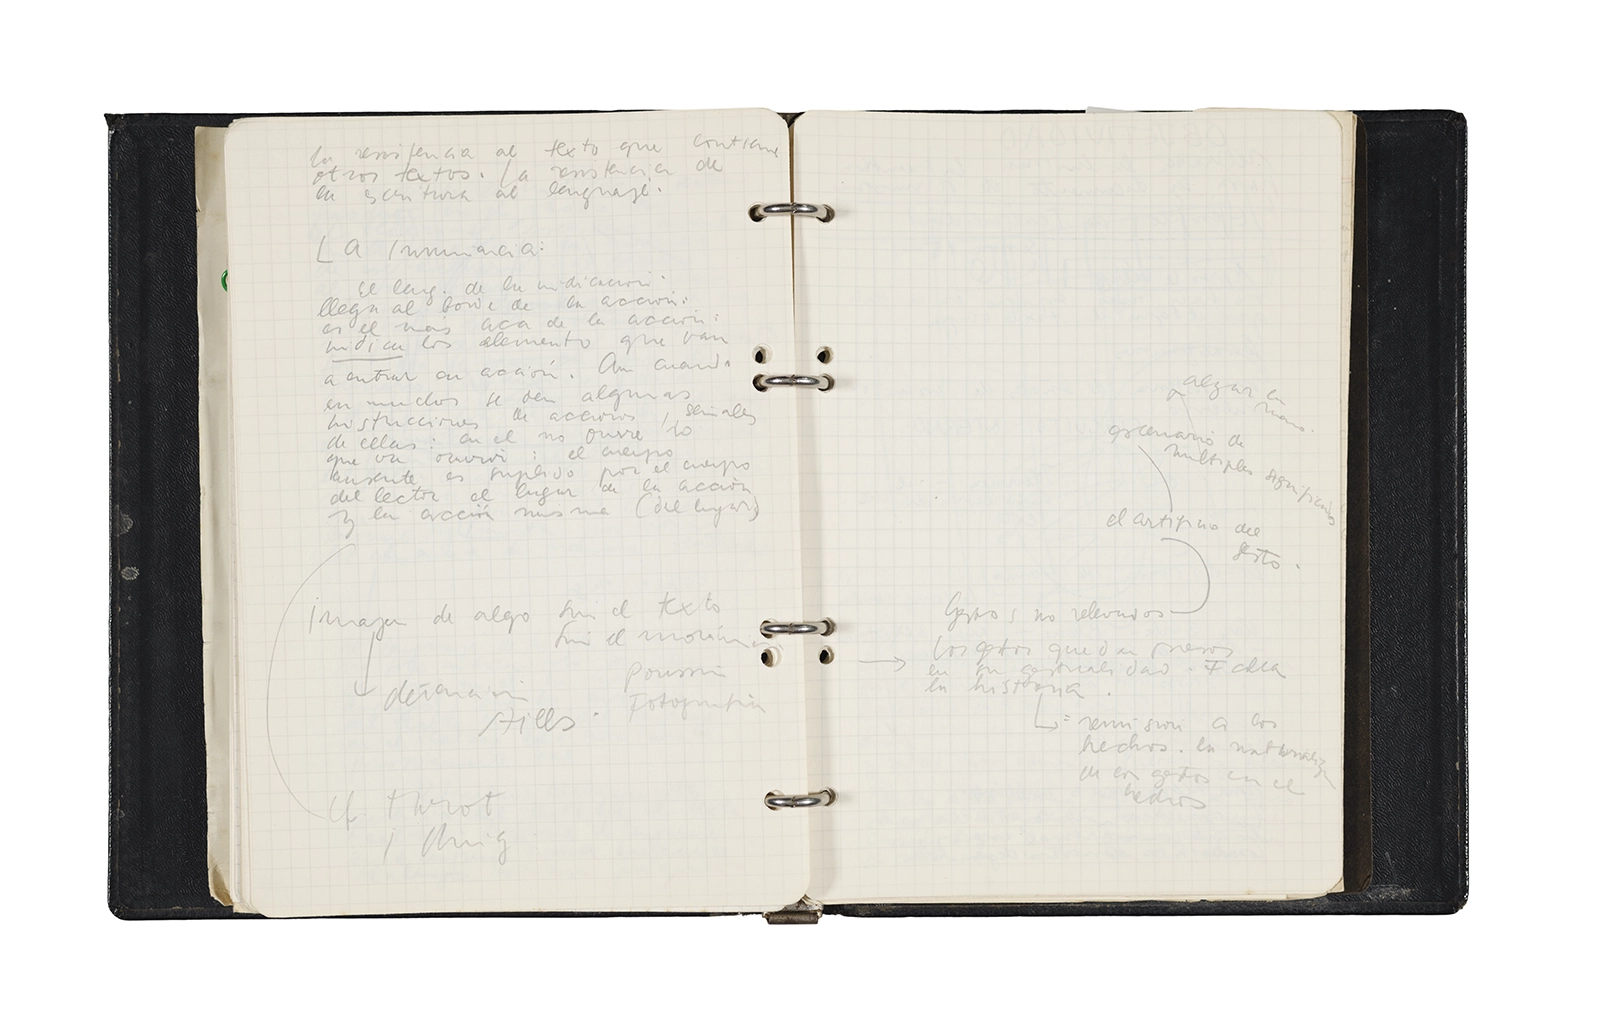 la resistencia al texto que contiene
otros textos. La resistencia de
la escritura al lenguaje.
LA Inminencia:
El leng. de la indicación:
llega al borde de la acción:
es el más acá de la acción:
indica los elemento que van
a entrar en acción. Aun cuando
en muchos se den algunas
instrucciones de acciones, señales
de ellas: en el no ocurre lo
que va ocurrir: el cuerpo
ausente es suplido por el cuerpo
del lector el lugar de la acción
y la acción misma (del lugar)
imagen de algo sin el texto
sin el
detención
Poussin
Stills.
Fotografía
cf.
alzar la
mano.
escenario de
multiples significados
el artificio del
gesto.
Gestos no relevados
Los gestos quedan presos
en su gestualidad. ≠ idea
la historia.
= remisión a los
hechos. la naturaleza
de los gestos en el
hechos